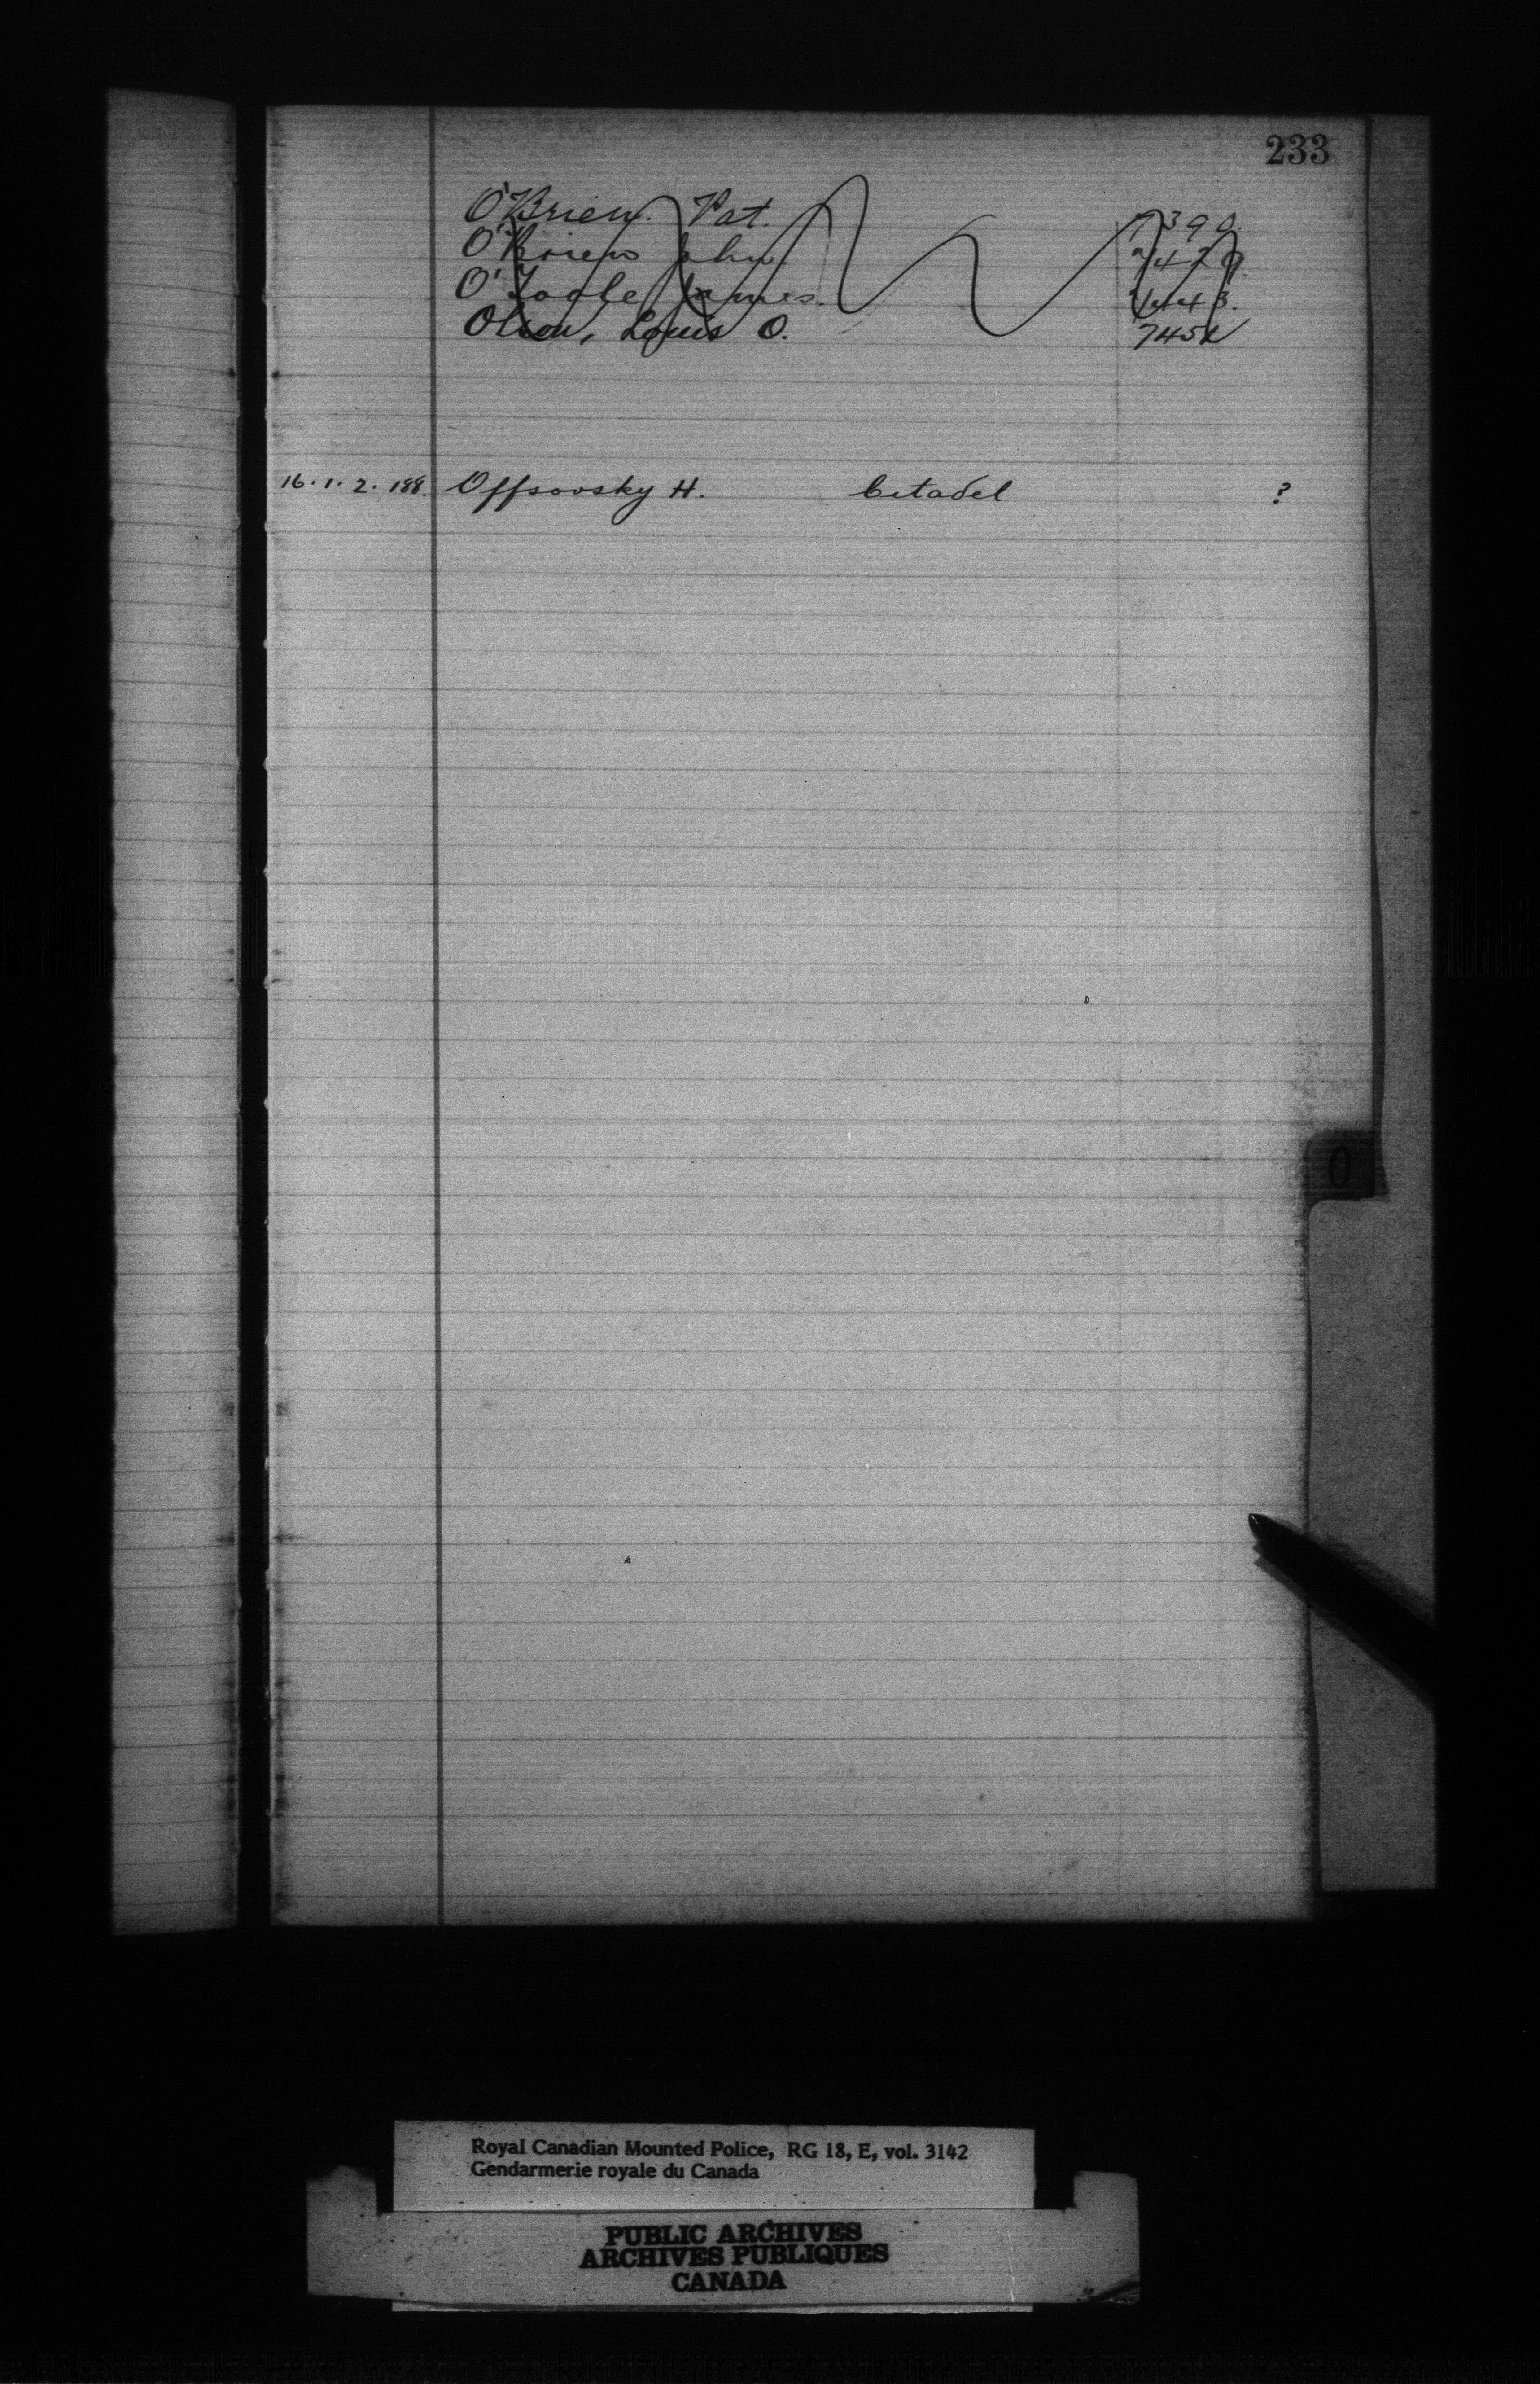 233
O'Brien. Pat. 7390.
O'Brien John. 7429.
O'Toole James. 7443.
Olsen, Louis O. 7452
16.1.2.188. Offsovsky H. Citadel ?
O
Royal Canadian Mounted Police, RG 18, E, vol. 3142
Gendarmerie royale du Canada
PUBLIC ARCHIVES
ARCHIVES PUBLIQUES
CANADA